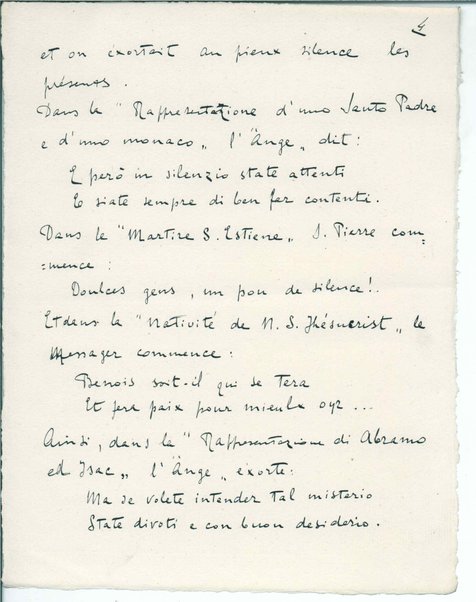 4
et on exortait au pieux silence les
présents.
Dans la "Rappresentazione d'uno Santo Padre
e d'uno monaco„ l'Änge„ dit:
E però in silenzio state attenti
E siate sempre di ben far contenti.
Dans le "Martire S. Estiene„ S. Pierre com=
=mence:
Doulces gens, un pou de silence!.
Et dans la "Nativité de N. S. Jhésucrist„ le
Messager commence:
Benois soit-il qui se tera
Et fera paix pour mieulx oyr ...
Ainsi, dans la "Rappresentazione di Abramo
ed Isac„ l'Änge„ exorte:
Ma se volete intender tal misterio
State divoti e con buon desiderio.